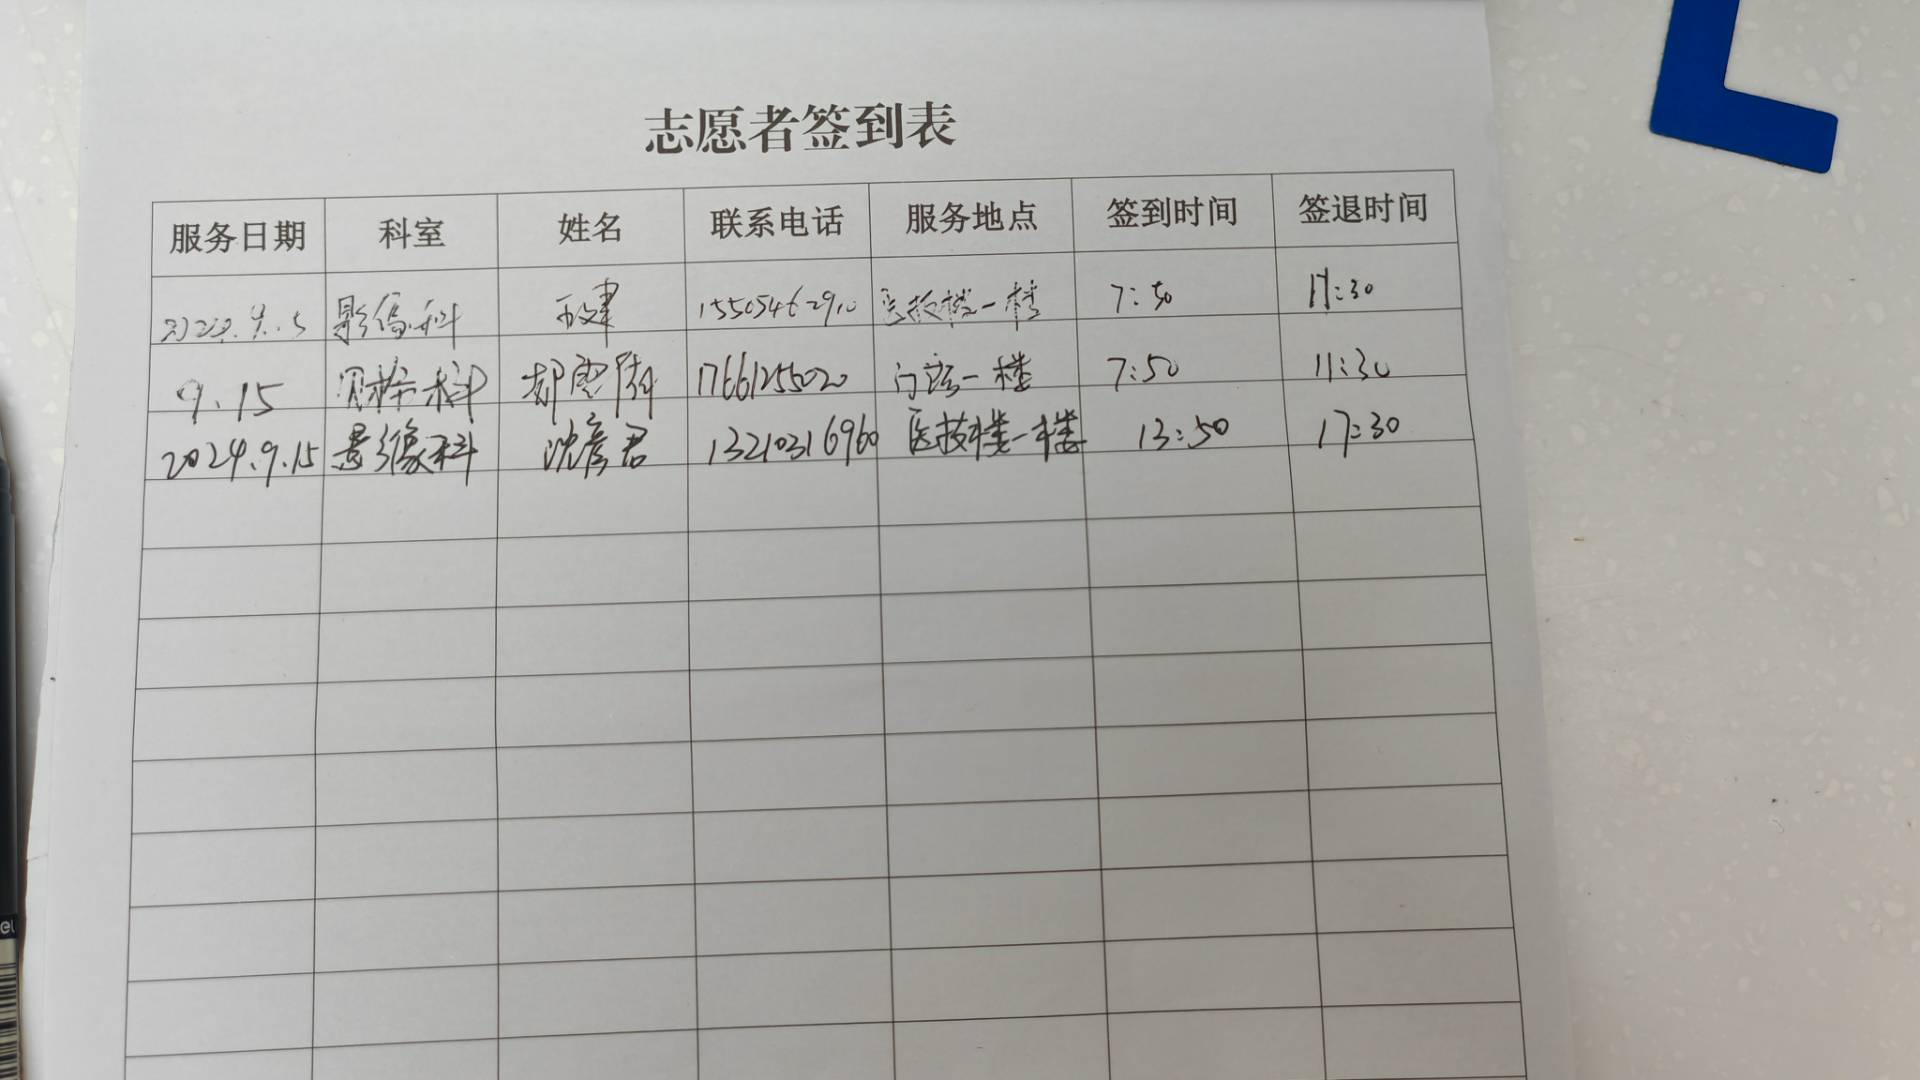 志愿者签到表
服务日期 科室 姓名 联系电话 服务地点 签到时间 签退时间
影像科 15505462910 医技楼一楼 7:50 11:30
9.15 科 17661255020 门诊一楼 7:50 11:30
2024.9.15 影像科 沈彦君 13210316960 医技楼一楼 13:50 17:30